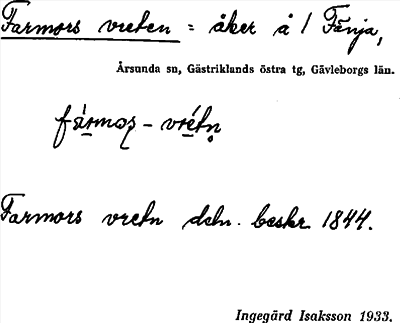 Farmors vreten = åker å 1 Fänja,
Årsunda sn, Gästriklands östra tg, Gävleborgs län.
fármoʂ - vrétn̥
Farmors vretn deln. beskr. 1844.
Ingegärd Isaksson 1933.